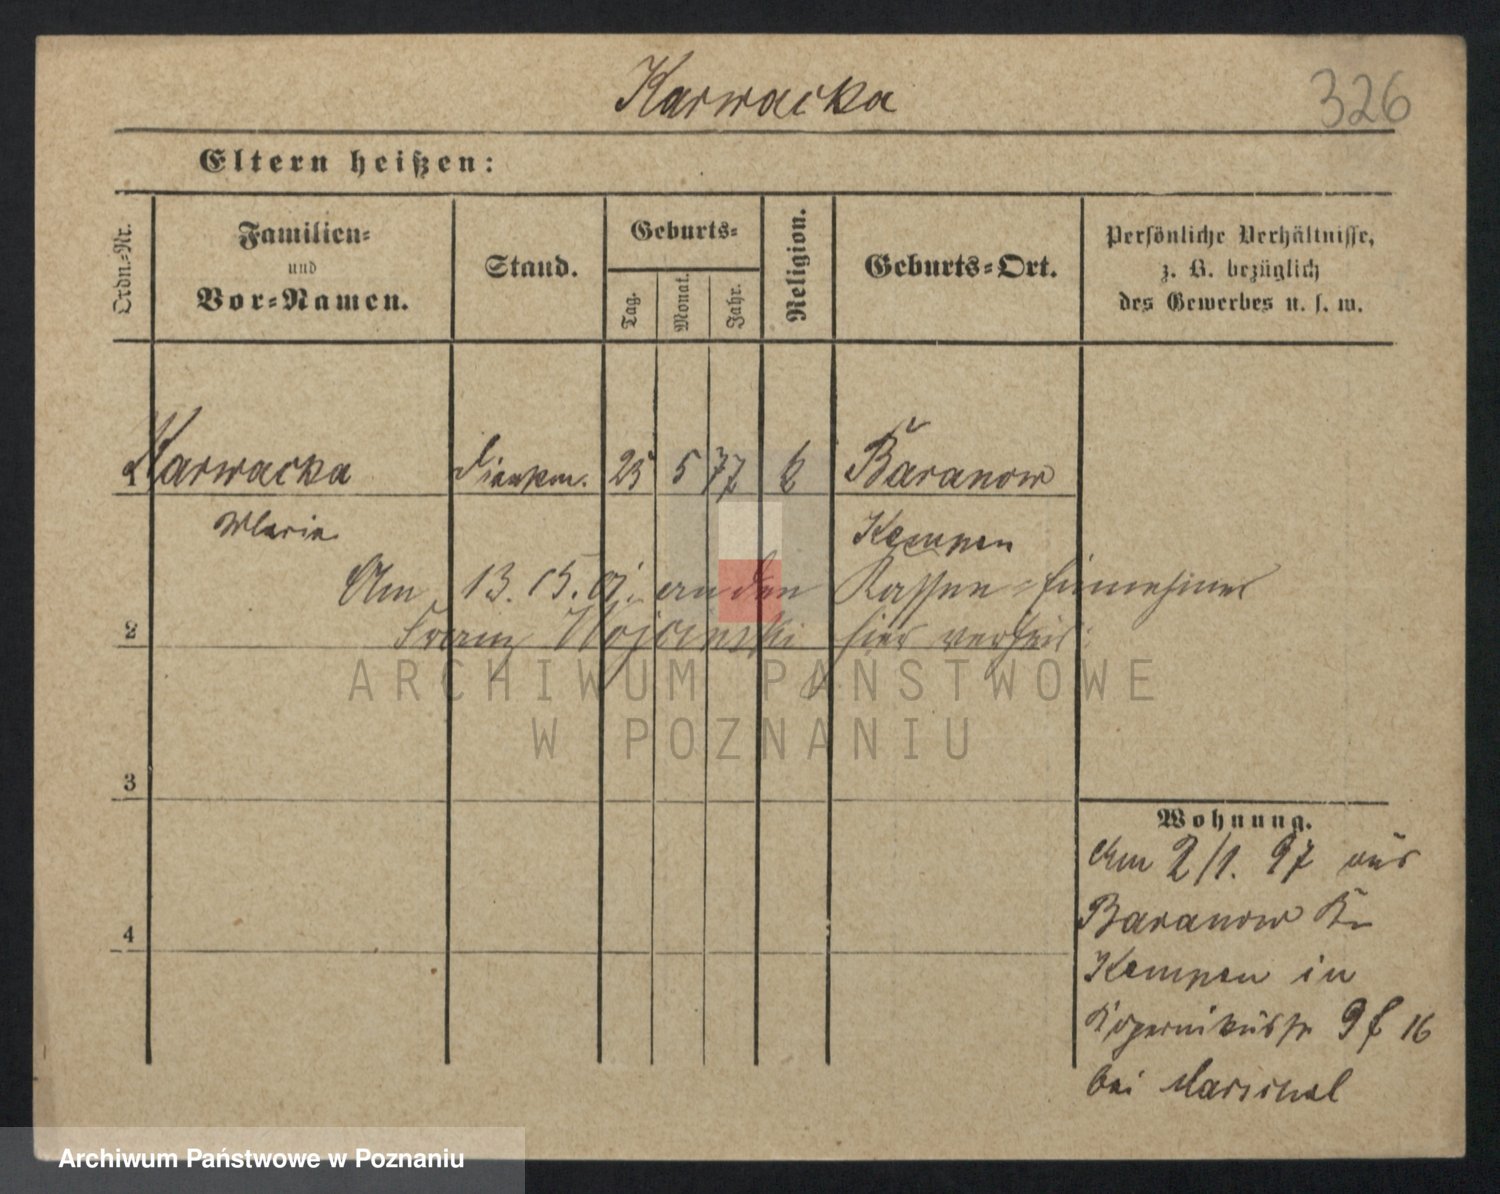 Karwacka
326
Eltern heißen:
Ordn.-Nr.
Familien-
und
Vor-Namen.
Stand.
Geburts-
Tag.
Monat.
Jahr.
Religion.
Geburts-Ort.
Persönliche Verhältnisse,
z. B. bezüglich
des Gewerbes u. s. w.
1 Karwacka 25 5 77 k Baranow
Maria Kempen
Am 13. 05. 01. an den Kassen-Einnehmer
Franz Wojcinski hier verheir.
2
ARCHIWUM PAŃSTWOWE
W POZNANIU
3
4
Wohnung.
Am 2/1. 97 aus
Baranow Kr
Kempen in
Kopernikusstr 9 16
bei Marschal
Archiwum Państwowe w Poznaniu